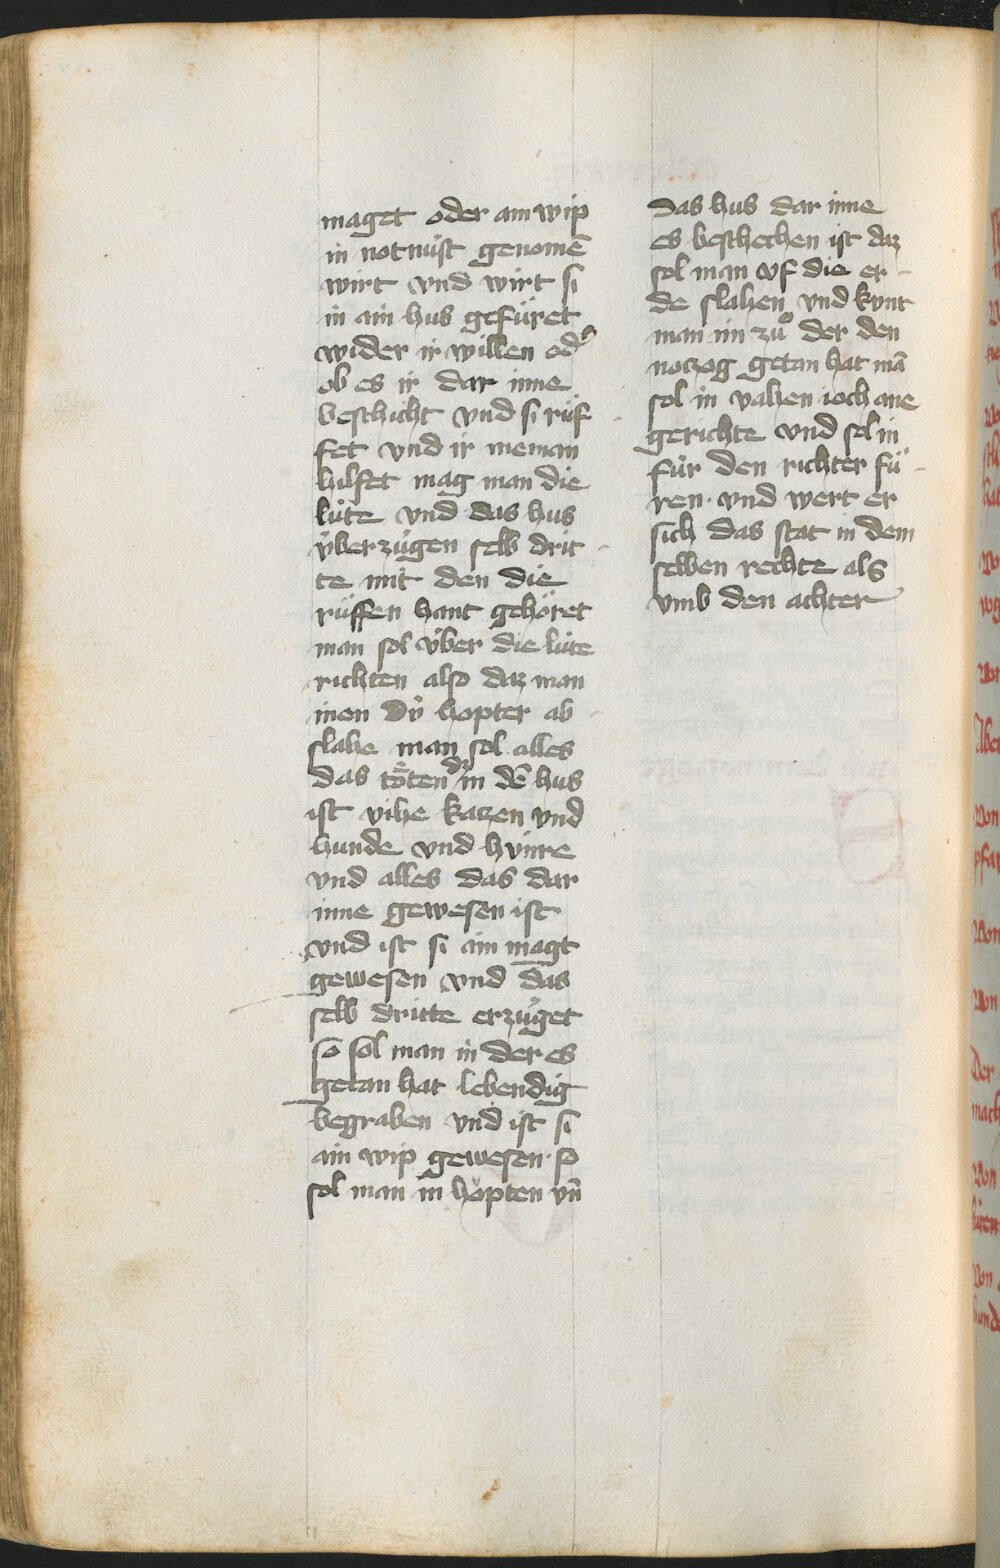 maget oder ain wip
in notnúft genomē
wirt vnd wirt si
in ain hus gefüret
wider ir willen od͛
ob es ir dar inne
beschicht vnd si rüf
fet vnd ir nieman
hilfet mag man die
lúte vnd das hus
v́berzúgen selb drit
te mit den die
rüffen hant gehöret
man sol v́ber die lúte
richten also daz man
inen dv́ hopter ab
slahe man sol alles
das töten dz in dē hus
ist vihe katzen vnd
hunde vnd hv́nre
vnd alles das dar
inne gewesen ist
vnd ist si ain magt
gewesen vnd das
selb dritte erzúget
so sol man in der es
getan hat lebendig
begraben vnd ist si
ain wip gewesen so
sol man in höpten vn̄
das hus dar inne
es beschechen ist daz
sol man vf die er-
de slahen vnd kvnt
man im zů der den
notzog getan hat mā
sol in vahen ioch ane
gerichte vnd sol in
für den richter fü-
ren. vnd wert er
sich das stat in dem
selben rechte als
vmb den achter